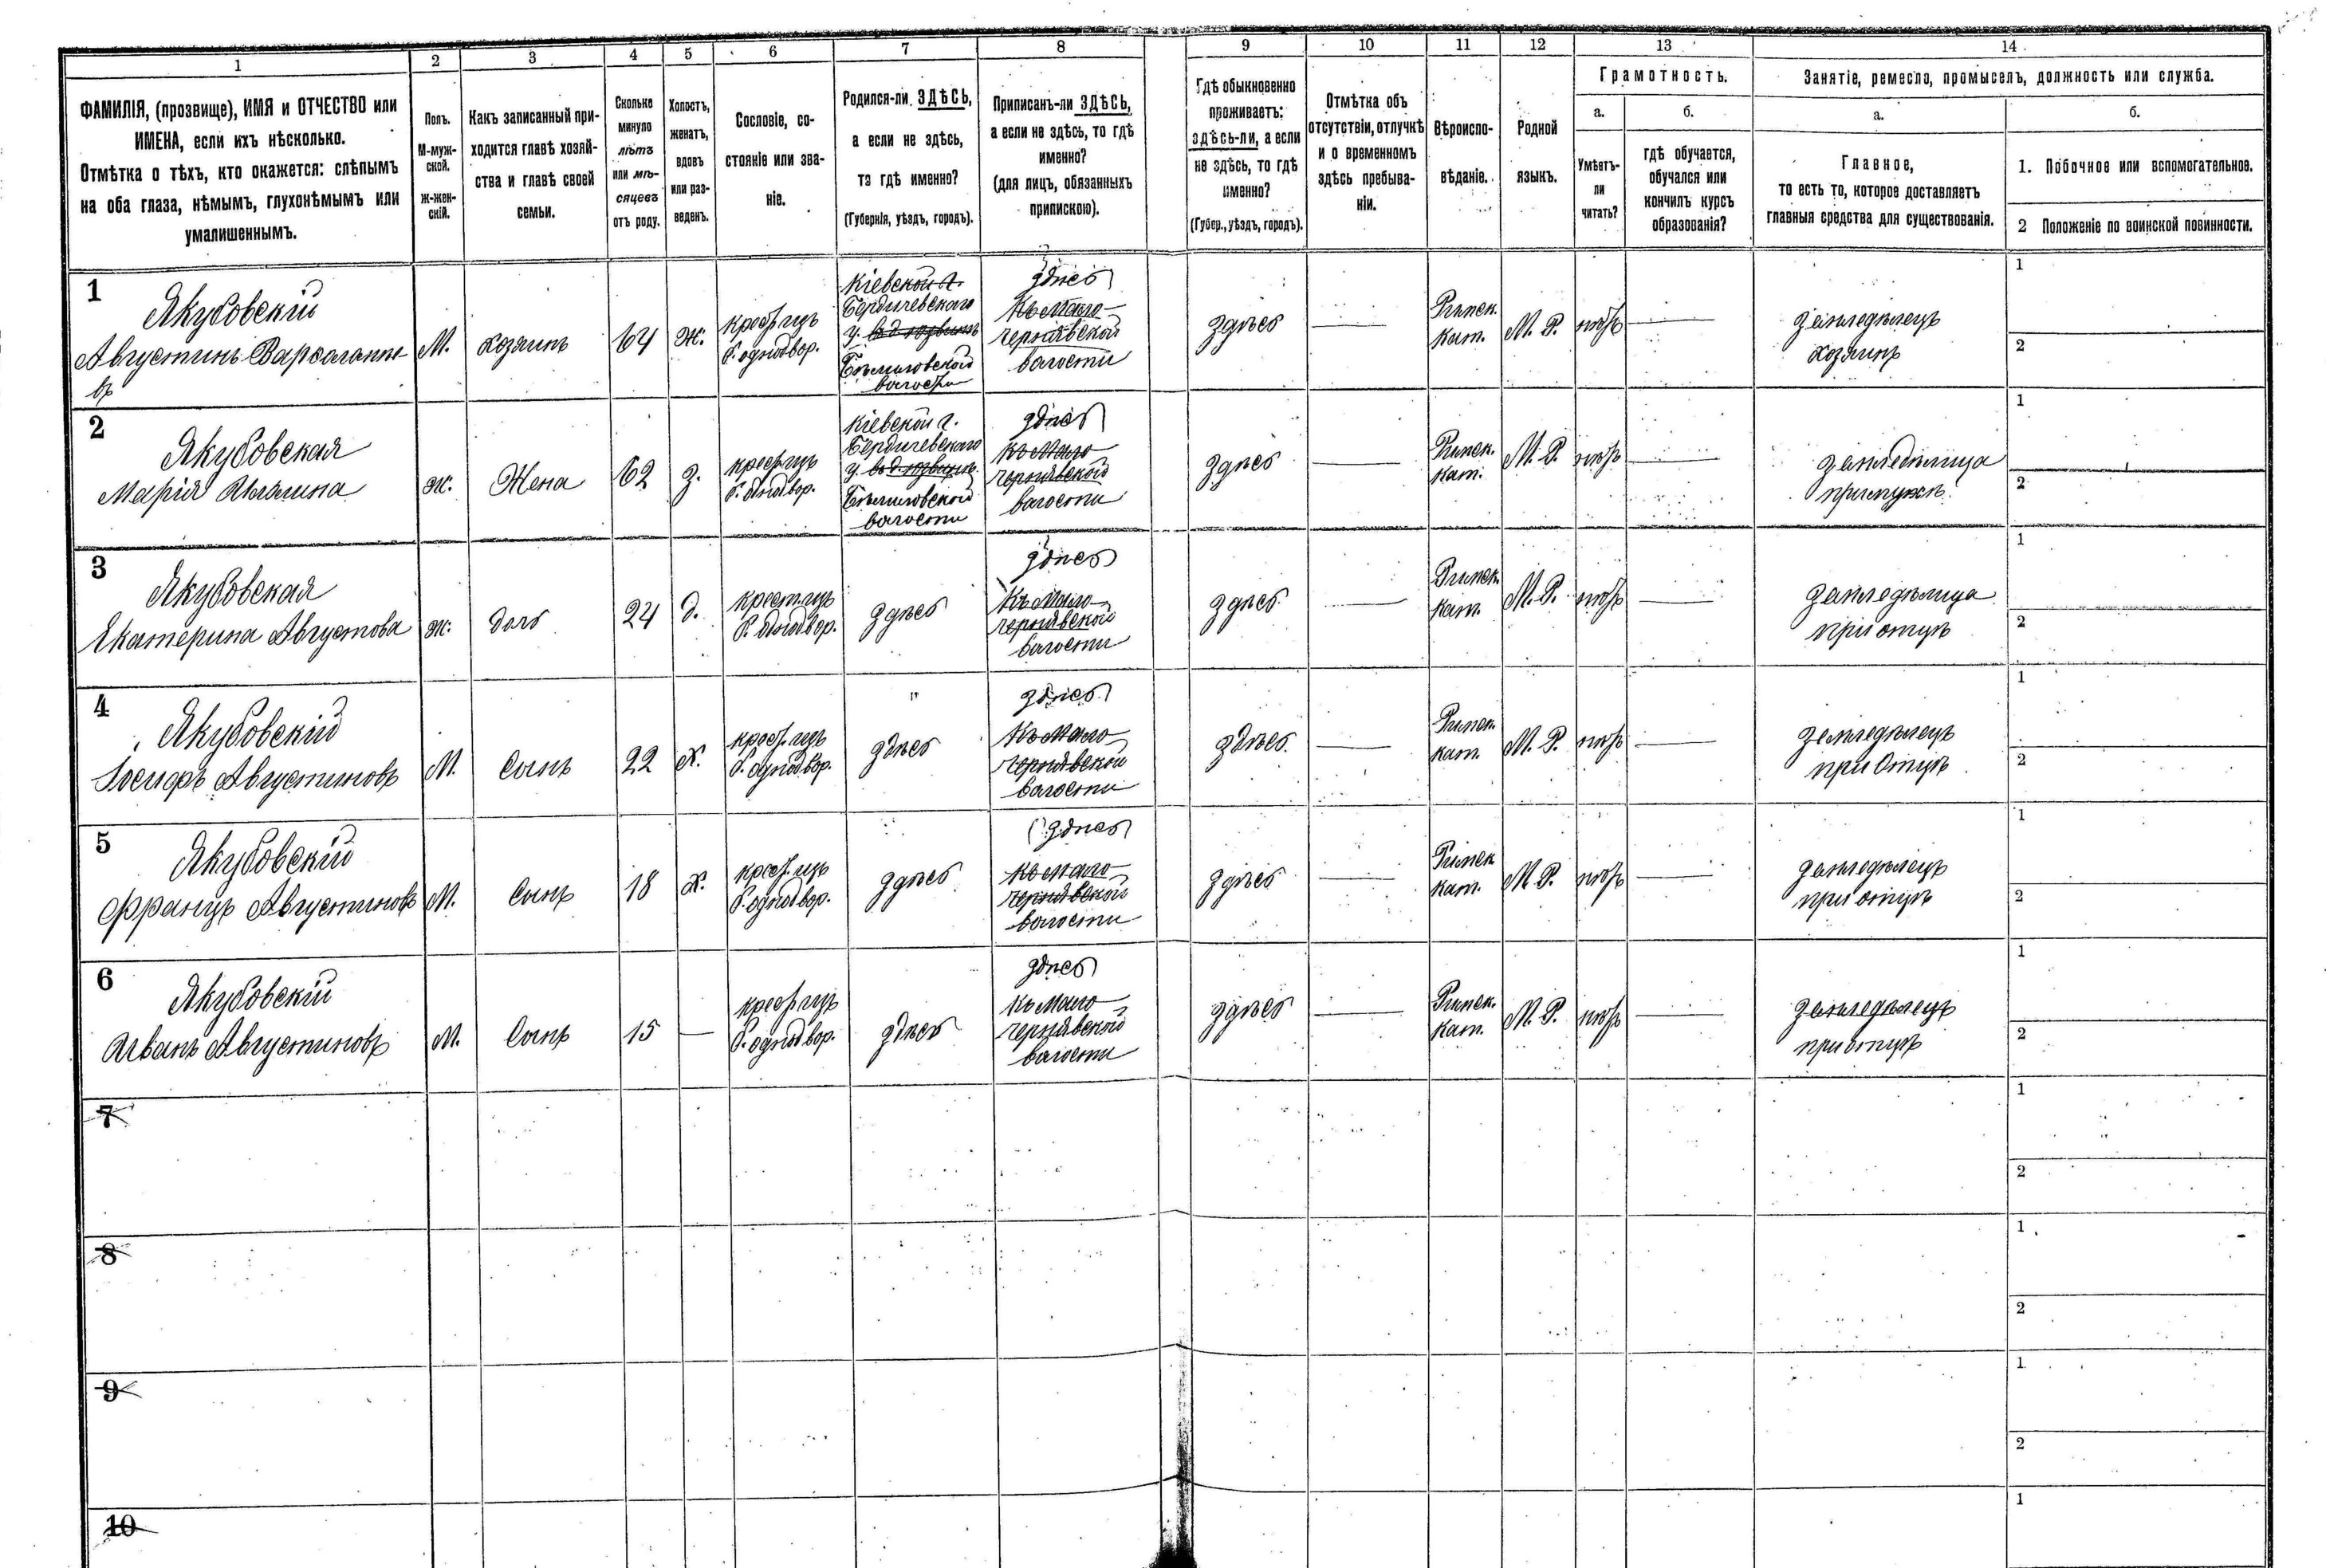 1
2
3
4
5
6
7
8
9
10
11
12
13
14
ФАМИЛІЯ, (прозвище), ИМЯ и ОТЧЕСТВО или
ИМЕНА, если ихъ нѣсколько.
Отмѣтка о тѣхъ, кто окажется: слѣпымъ
на оба глаза, нѣмымъ, глухонѣмымъ или
умалишеннымъ.
Полъ.
М-муж-
ской.
ж-жен-
скій.
Какъ записанный при-
ходится главѣ хозяй-
ства и главѣ своей
семьи.
Сколько
минуло
лѣтъ
или мѣ-
сяцевъ
отъ роду.
Холостъ,
женатъ,
вдовъ
или раз-
веденъ.
Сословіе, со-
стояніе или зва-
ніе.
Родился-ли ЗДѢСЬ,
а если не здѣсь,
то гдѣ именно?
(Губернія, уѣздъ, городъ).
Приписанъ-ли ЗДѢСЬ,
а если не здѣсь, то гдѣ
именно?
(для лицъ, обязанныхъ
припискою).
Гдѣ обыкновенно
проживаетъ:
здѣсь-ли, а если
не здѣсь, то гдѣ
именно?
(Губер., уѣздъ, городъ).
Отмѣтка объ
отсутствіи, отлучкѣ
и о временномъ
здѣсь пребыва-
ніи.
Вѣроиспо-
вѣданіе.
Родной
языкъ.
Грамотность.
а.
Умѣетъ-
ли
читать?
б.
гдѣ обучается,
обучался или
кончилъ курсъ
образованія?
Занятіе, ремесло, промыселъ, должность или служба.
а.
Главное,
то есть то, которое доставляетъ
главныя средства для существованія.
б.
1. Побочное или вспомогательное.
2 Положеніе по воинской повинности.
1
Якубовскій
Августинъ
М.
хозяинъ
64
ж.
Кіевской г.
Бердичевскаго
у.
волости
здѣсь
Къ Мало-
чернявской
волости
здѣсь
Римск.
Кат.
М. Р.
земледѣлецъ
хозяинъ
1
2
2
Якубовская
Марія
ж.
Жена
62
з.
Кіевской г.
Бердичевскаго
у.
волости
здѣсь
Къ Мало-
чернявской
волости
здѣсь
Римск.
Кат.
М. Р.
земледѣлица
при мужѣ
1
2
3
Якубовская
Екатерина Августова
ж.
дочь
24
д.
здѣсь
здѣсь
Къ Мало-
чернявской
волости
здѣсь
Римск.
Кат.
М. Р.
земледѣлица
при отцѣ
1
2
4
Якубовскій
Іосифъ Августиновъ
М.
Сынъ
22
х.
здѣсь
здѣсь
Къ Мало-
чернявской
волости
здѣсь
Римск.
Кат.
М. Р.
земледѣлецъ
при отцѣ
1
2
5
Якубовскій
Францъ Августиновъ
М.
Сынъ
18
х.
здѣсь
здѣсь
Къ Мало-
чернявской
волости
здѣсь
Римск
Кат.
М. Р.
земледѣлецъ
при отцѣ
1
2
6
Якубовскій
Иванъ Августиновъ
М.
Сынъ
15
здѣсь
здѣсь
Къ Мало-
чернявской
волости
здѣсь
Римск.
Кат.
М. Р.
земледѣлецъ
при отцѣ
1
2
7
1
2
8
1
2
9
1
2
10
1